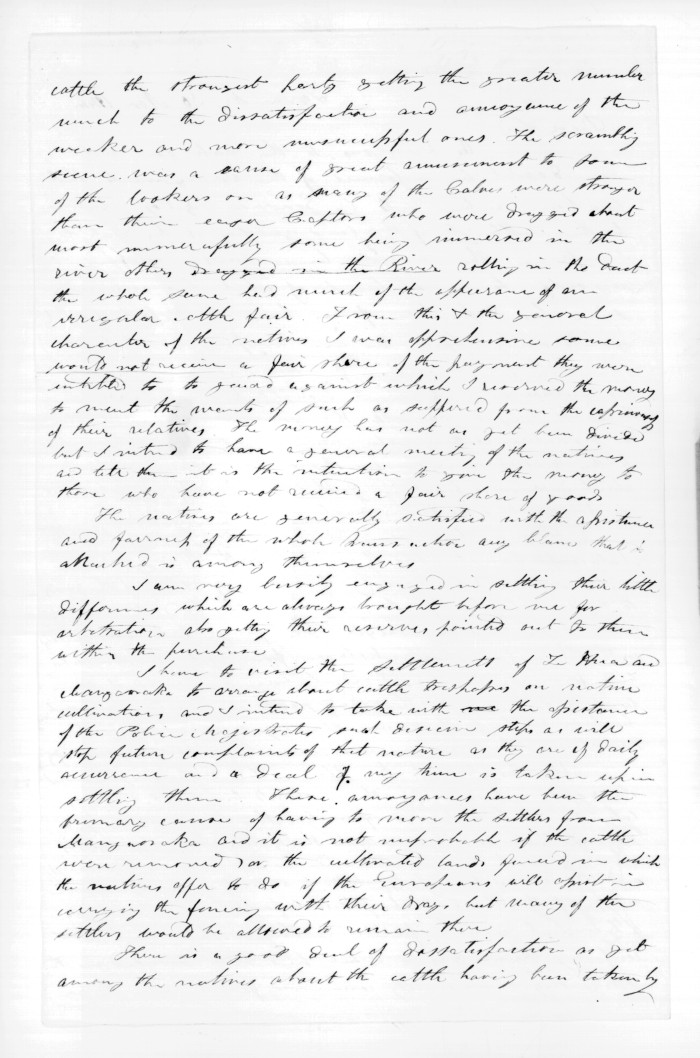 cattle the strongest party getting the greater number
much to the dissatisfaction and annoyance of the
weaker and more unsuccessful ones. The scrambling
scene was a cause of great amusement to some
of the lookers on as many of the Calves were stronger
than their eager Captors who were dragged about
most unmercifully some being immersed in the
river others dragged in the River rolling in the dust
the whole scene had much of the appearance of an
irregular cattle fair. From this & the general
character of the natives I was apprehensive some
would not receive a fair share of the payment they were
entitled to to guard against which I reserved the money
to meet the wants of such as suffered from the
of their relatives. The money has not as yet been divided
but I intend to have a general meeting of the natives
and tell them it is the intention to give the money to
those who have not received a fair share of goods
The natives are generally satisfied with the assistance
and fairness of the whole transaction any blame that is
attached is among themselves
I am very busily engaged in settling their little
differences which are always brought before me for
arbitration also getting their reserves pointed out to them
within the purchase
I have to visit the settlements of Te and
Mangawaka to arrange about cattle trespasses on native
cultivations and I intend to take with me the assistance
of the Police Magistrates such decisive steps as will
stop future complaints of that nature as they are of daily
occurrence and a deal of my time is taken up in
settling them. These annoyances have been the
primary cause of having to move the settlers from
and it is not improbable if the cattle
were removed or the cultivated lands fenced in which
the natives offer to do if the Europeans will assist in
carrying the fencing with their drays but many of the
settlers would be allowed to remain there
There is a good deal of dissatisfaction as yet
among the natives about the cattle having been taken by